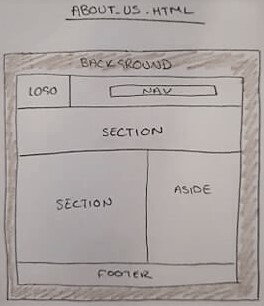 ABOUT_US.HTML
BACKGROUND
LOGO
NAV
SECTION
SECTION
ASIDE
FOOTER